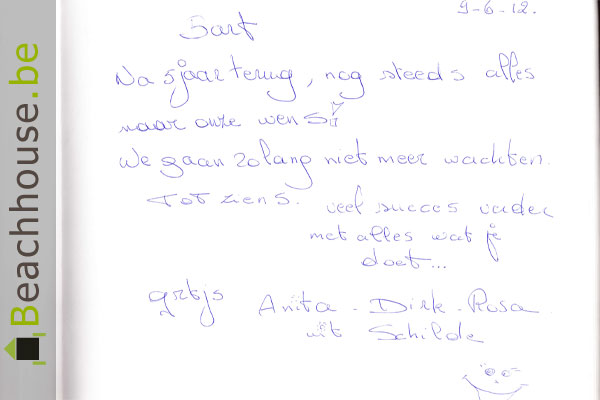 Beachhouse.be
9-6-12.
Bart
Na 5 jaar terug, nog steeds alles
naar onze wens!!
We gaan zolang niet meer wachten.
Tot ziens. veel succes verder
met alles wat je
doet...
grtjs Anita - Dirk - Rosa
uit Schilde